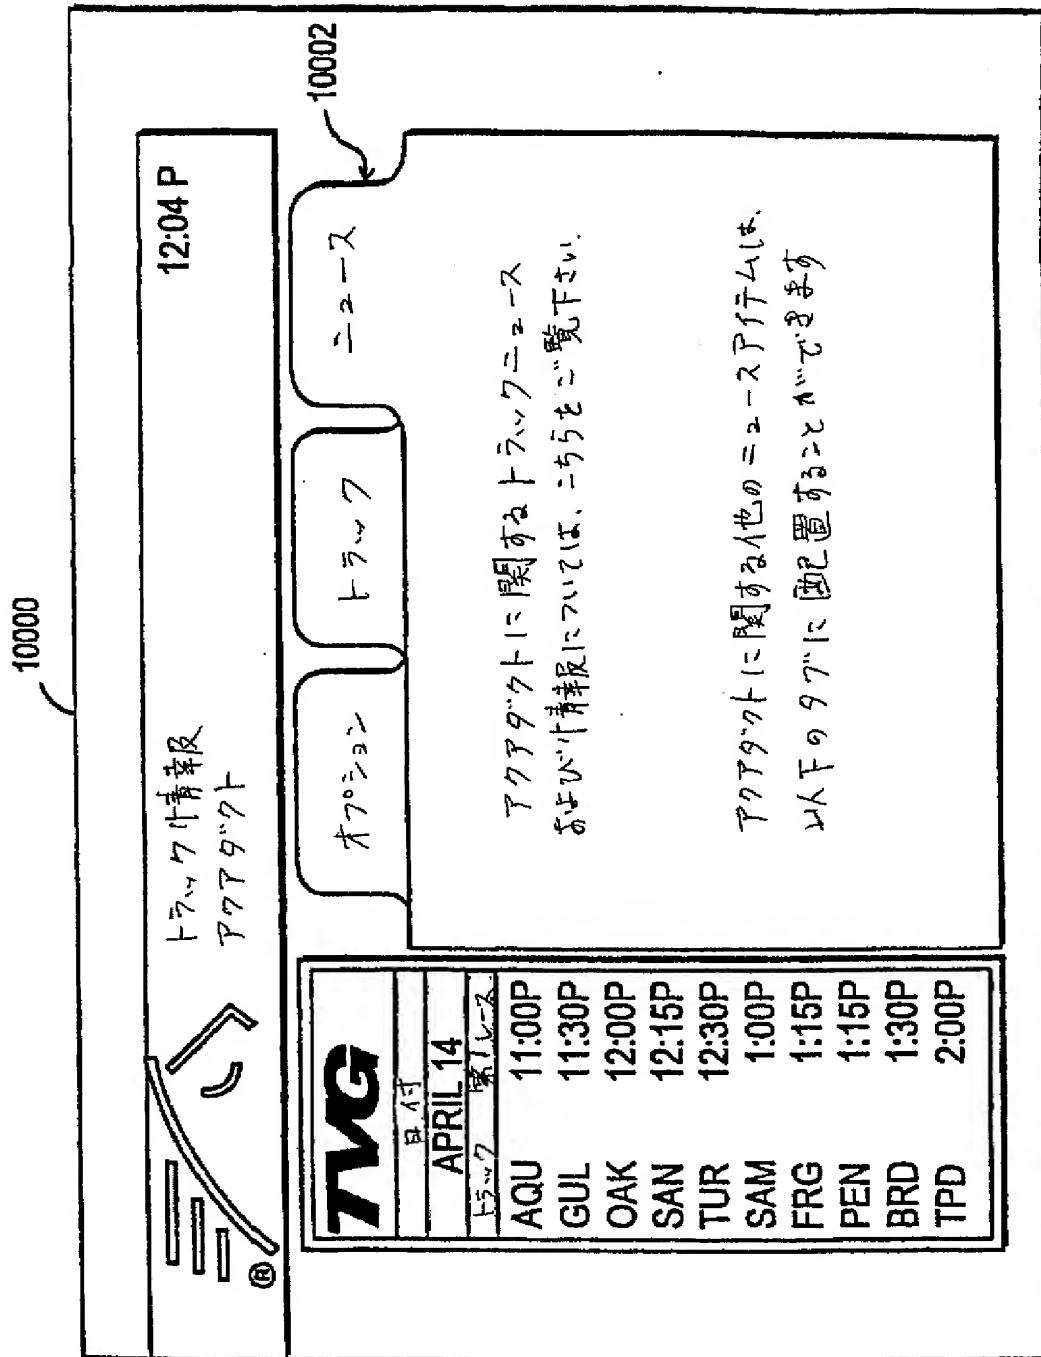 10000
トラック情報
アクアダクト
12:04 P
®
TVG
日付
APRIL 14
トラック 第1レース
AQU 11:00P
GUL 11:30P
OAK 12:00P
SAN 12:15P
TUR 12:30P
SAM 1:00P
FRG 1:15P
PEN 1:15P
BRD 1:30P
TPD 2:00P
オプション
トラック
ニュース
10002
アクアダクトに関するトラックニュース
および情報については、こちらをご覧下さい.
アクアダクトに関する他のニュースアイテムは、
以下のタブに配置することができます